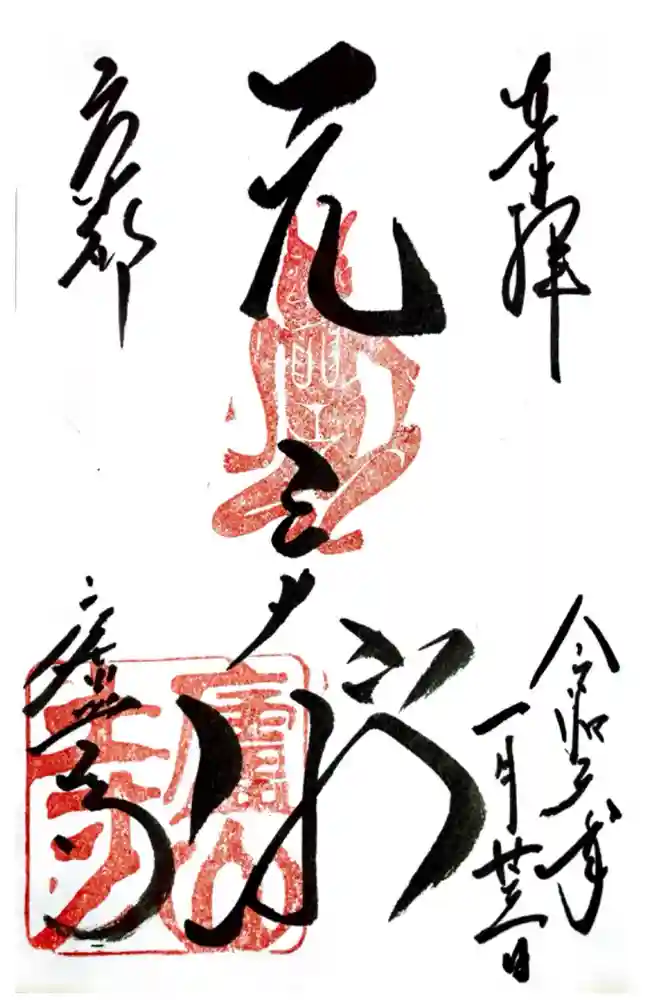 奉拝
令和 年
一月廿三日
元三大師
京都
廬山寺
廬山寺